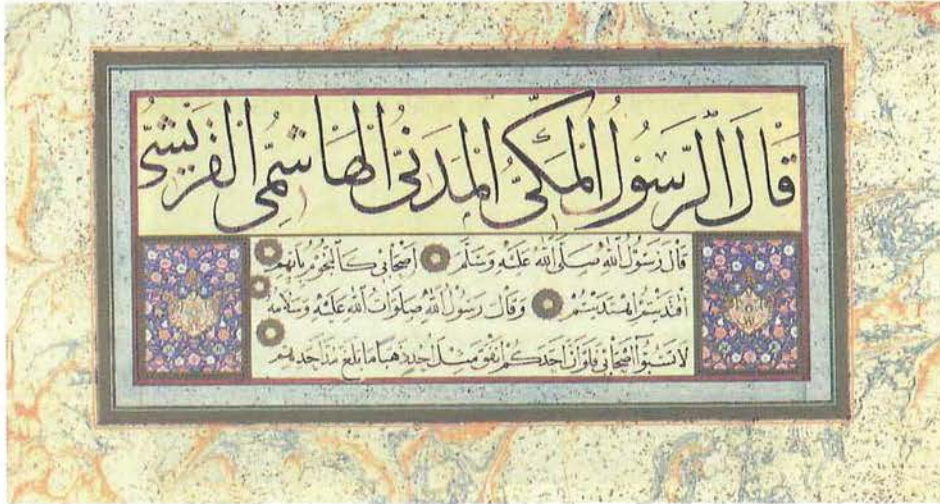 قَالَ الرَّسُولُ الْمَكِّيُّ الْمَدَنِيُّ الْهَاشِمِيُّ الْقُرَيْشِيُّ
قَالَ رَسُولُ اللهِ صَلَّى اللهُ عَلَيْهِ وَسَلَّمَ اَصْحَابِي كَالنُّجُومِ بِأَيِّهِمْ
اقْتَدَيْتُمْ اهْتَدَيْتُمْ وَقَالَ رَسُولُ اللهِ صَلَوَاتُ اللهِ عَلَيْهِ وَسَلَامُهُ
لَا تَسُبُّوا اَصْحَابِي فَلَوْ اَنَّ اَحَدَكُمْ اَنْفَقَ مِثْلَ اُحُدٍ ذَهَبًا مَا بَلَغَ مُدَّ اَحَدِهِمْ